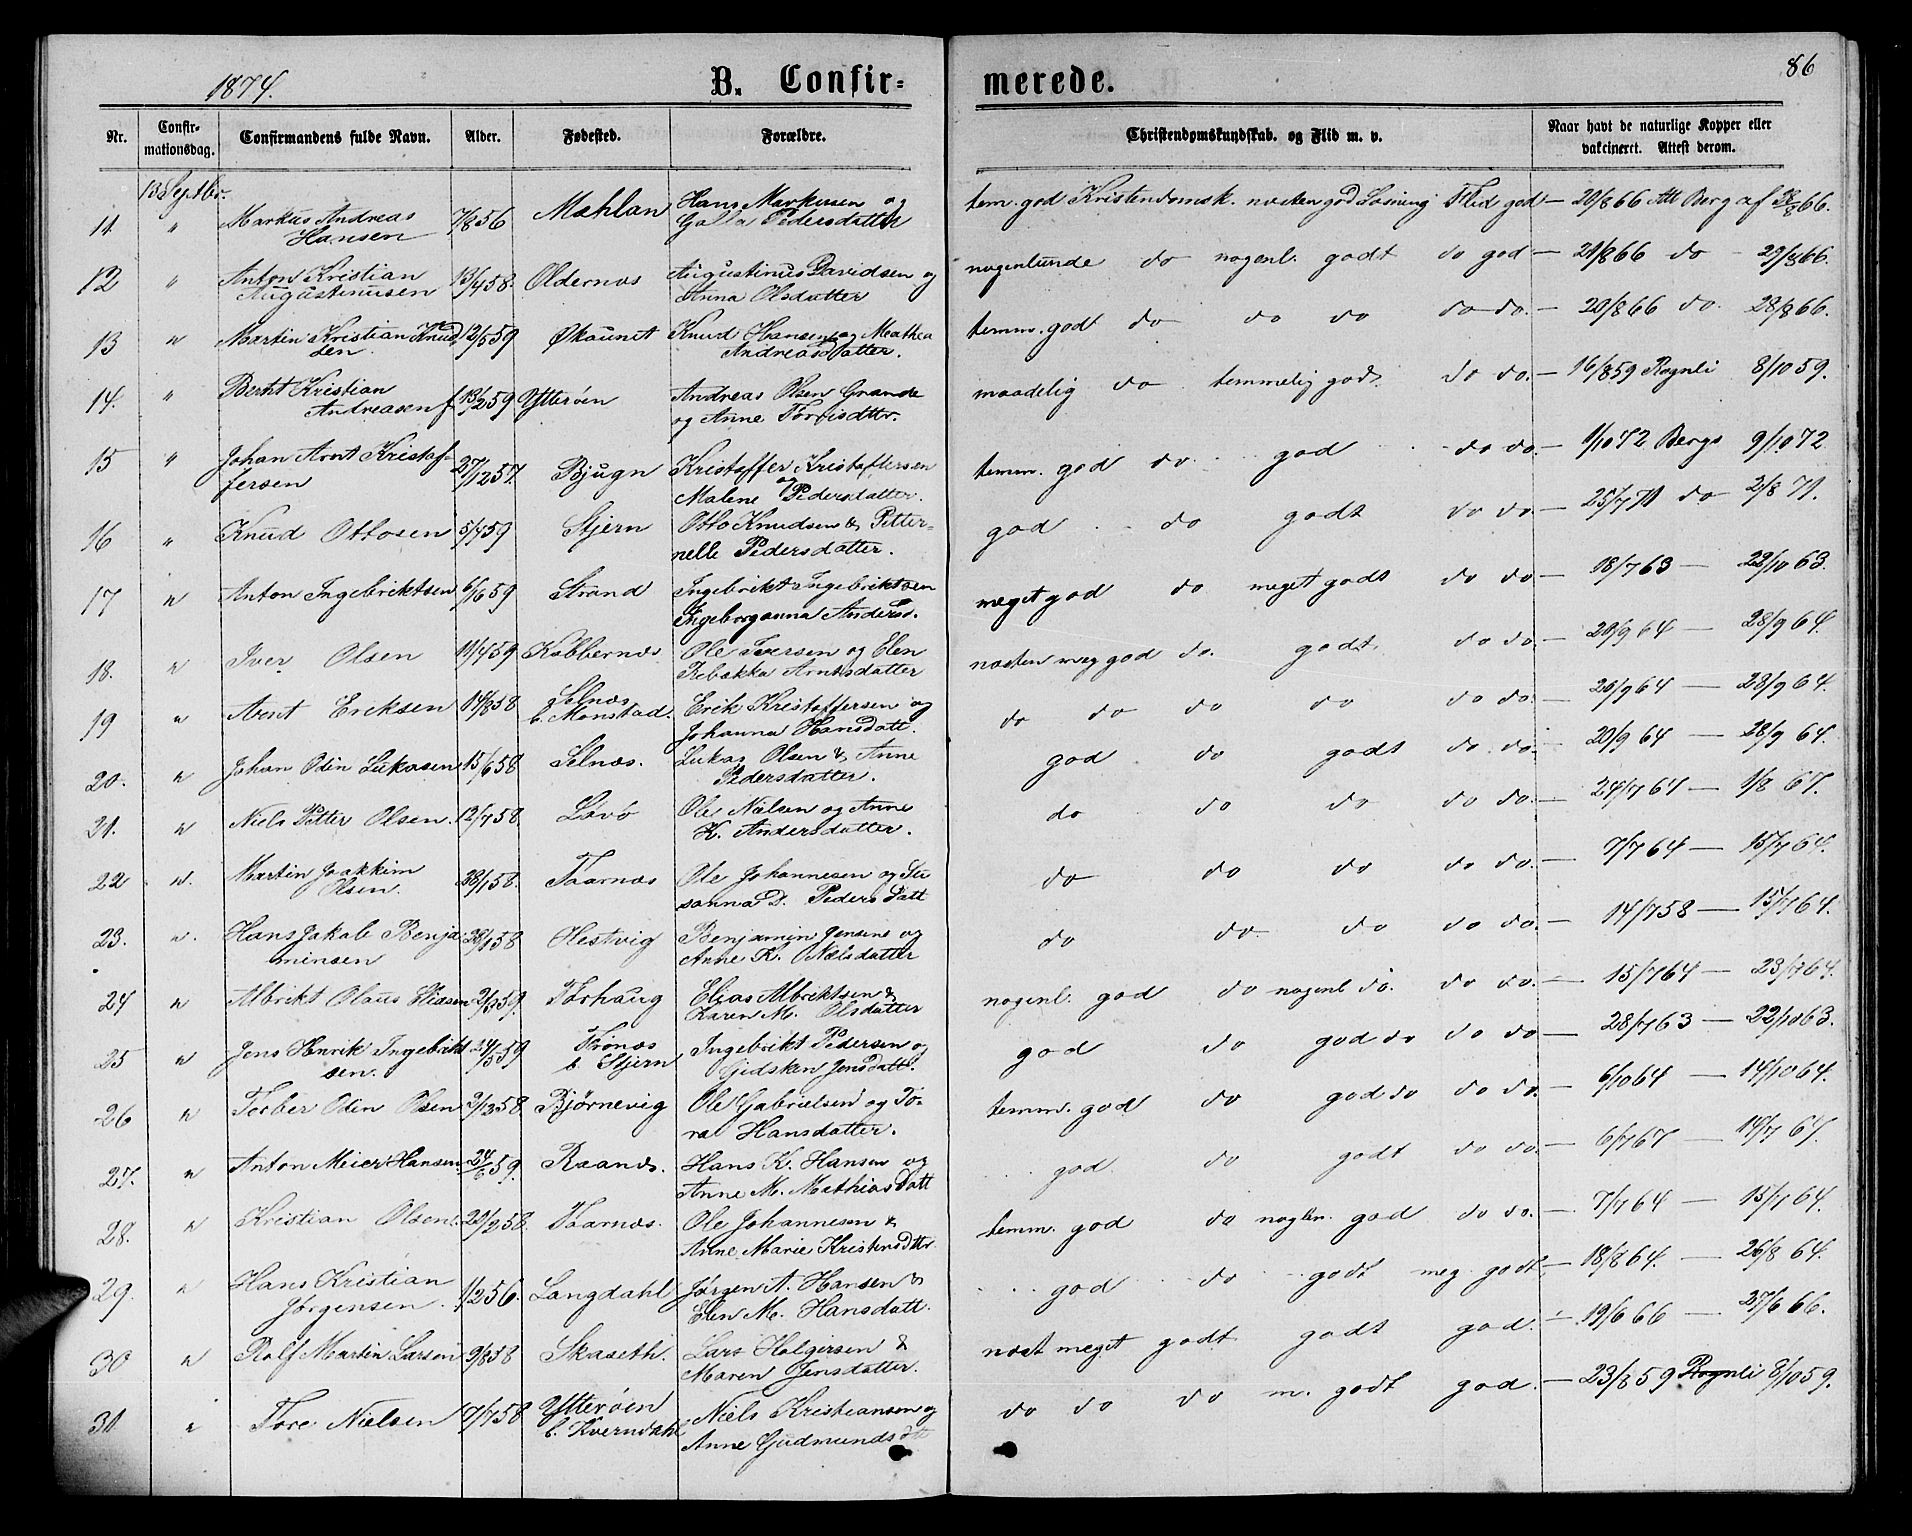 1874.
B. Confirmerede.
86
Nr.
Confirmationsdag.
Confirmandens fulde Navn.
Alder.
Fødested.
Forældre.
Christendomskundskab. og Flid m. v.
Naar havt de naturlige Kopper eller vakcineret. Attest derom.
13 Septbr.
11 " Markus Andreas Hansen 7/8 56 Mæhlan Hans Markusen og Golla Pedersdatter tem. god Kristendomsk. næsten god Læsning Flid god — 20/8 66 Att Berg af 28/8 66.
12 " Anton Kristian Augustinusen 13/4 58. Oldernæs Augustinus Davidsen og Anna Olsdatter nogenlunde do nogenl. godt do god — 21/8 66 do — 29/8 66.
13 " Martin Kristian Knudsen 12/5 59 Økaunet Knud Hansen og Mathea Andreasdatter. temm. godt do do do do do. — 20/8 66 do. 28/8 66.
14. " Berht Kristian Andreasen f 13/2 59 Ytterøen Andreas Olsen Grande og Anne Torrisdttr. maadelig do temmelig god. do do. — 16/8 59 Rognli 8/10 59.
15 " Johan Arnt Kristaffersen 27/12 57. Bjugn Kristaffer Kristaffersen og Malene Pedersdatter. temm. god do. god do do. — 1/10 72 Bergs 9/10 72
16 " Knud Ottosen 5/4 59 Stjern Otto Knudsen & Petternelle Pedersdatter. god do godt do do. — 25/7 71 do 2/8 71.
17 " Anton Ingebriktsen 6/6 59 Strand Ingebrikt Ingebriktsen Ingeborganna Andersd. meget god do meget godt do do — 18/7 63 — 22/10 63.
18. " Iver Olsen 11/4 59 Kobbernæs Ole Iversen og Elen Rebækka Arntsdatter næsten meg god do. godt do do. — 20/9 64 — 28/9 64.
19 " Arnt Eriksen 14/8 58 Selnæs b. Monstad. Erik Kristaffersen og Johanna Hansdatt. do do do do do do. — 26/9 64 — 28/9 64.
20. " Johan Odin Lukasen 15/6 58 Selnæs. Lukas Olsen & Anne Pedersdatter. god do godt do. do. — 20/9 64 — 28/9 64.
21. " Niels Petter Olsen. 12/7 58. Lövö Ole Nielsen og Anne K. Andersdatter. do do do do do. — 24/7 67 — 1/8 67.
22 " Martin Joakkim Olsen. 28/1 58. Taarnæs Ole Johannesen og Susanna D. Pedersdatt do do do do do. — 7/7 64 — 15/7 64.
23. " Hans Jakob Benjaminsen 28/1 58 Hestvig Benjamin Jensen og Anne K. Nielsdatter do do do do do. — 14/7 58 — 15/7 64.
24 " Albrikt Olaus Eliasen 2/3 59. Torhaug Elias Albriktsen & Karen M. Olsdatter nogenl. god do nogenl do. do do. — 15/7 64 — 23/7 64.
25 " Jens Henrik Ingebriktsen. 24/3 59 Tronæs b. Stjern Ingebrikt Pedersen og Gjidsken Jensdatt. god do god do do do — 28/7 63 — 22/10 63.
26 " Torber Odin Olsen 2/12 58. Bjørnevig Ole Gabrielsen og Tora Hansdatter. temm. god do god do do do. — 6/10 64 — 14/10 64.
27. " Anton Meier Hansen. 24/6 59. Raanæs. Hans K. Hansen og Anne M. Mathiasdatt god do godt do do. — 6/7 67 — 14/7 67.
28. " Kristian Olsen 20/2 58. Taarnæs. Ole Johannesen & Anne Marie Kristensdttr temm. god do noglen. god do do. — 7/7 64 — 15/7 64.
29. " Hans Kristian Jørgensen. 1/2 56. Langdahl Jørgen A. Hansen & Elen M. Hansdatt. god do godt meg godt. — 18/8 64. — 26/8 64.
30 " Rolf Martin Larsen 9/8 58 Skaseth. Lars Holgersen & Maren Jensdatter. næst meget godt godt god. — 19/6 66 — 27/6 66.
31 " Tore Nielsen 7/7 58 Ytterøen b. Kverndahl Niels Kristiansen og Anne Gudmundsdtt do do do m. godt god. — 23/8 59 Rognli 8/10 59.